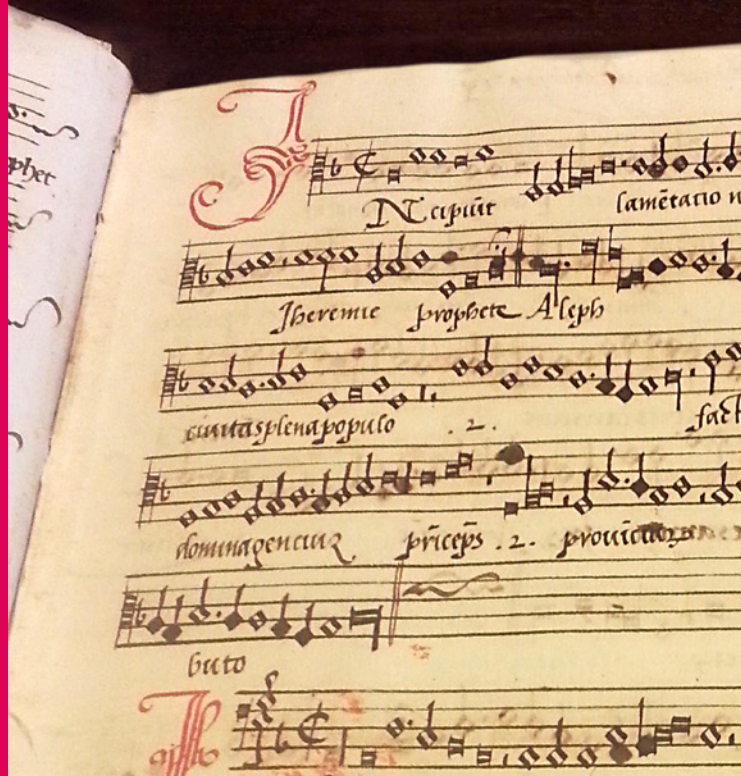 phet
INcipiūt lamētatio
Jheremie prophete Aleph
civitas plena populo .2. fact
domina genciū prīceps .2. provīcia
buto